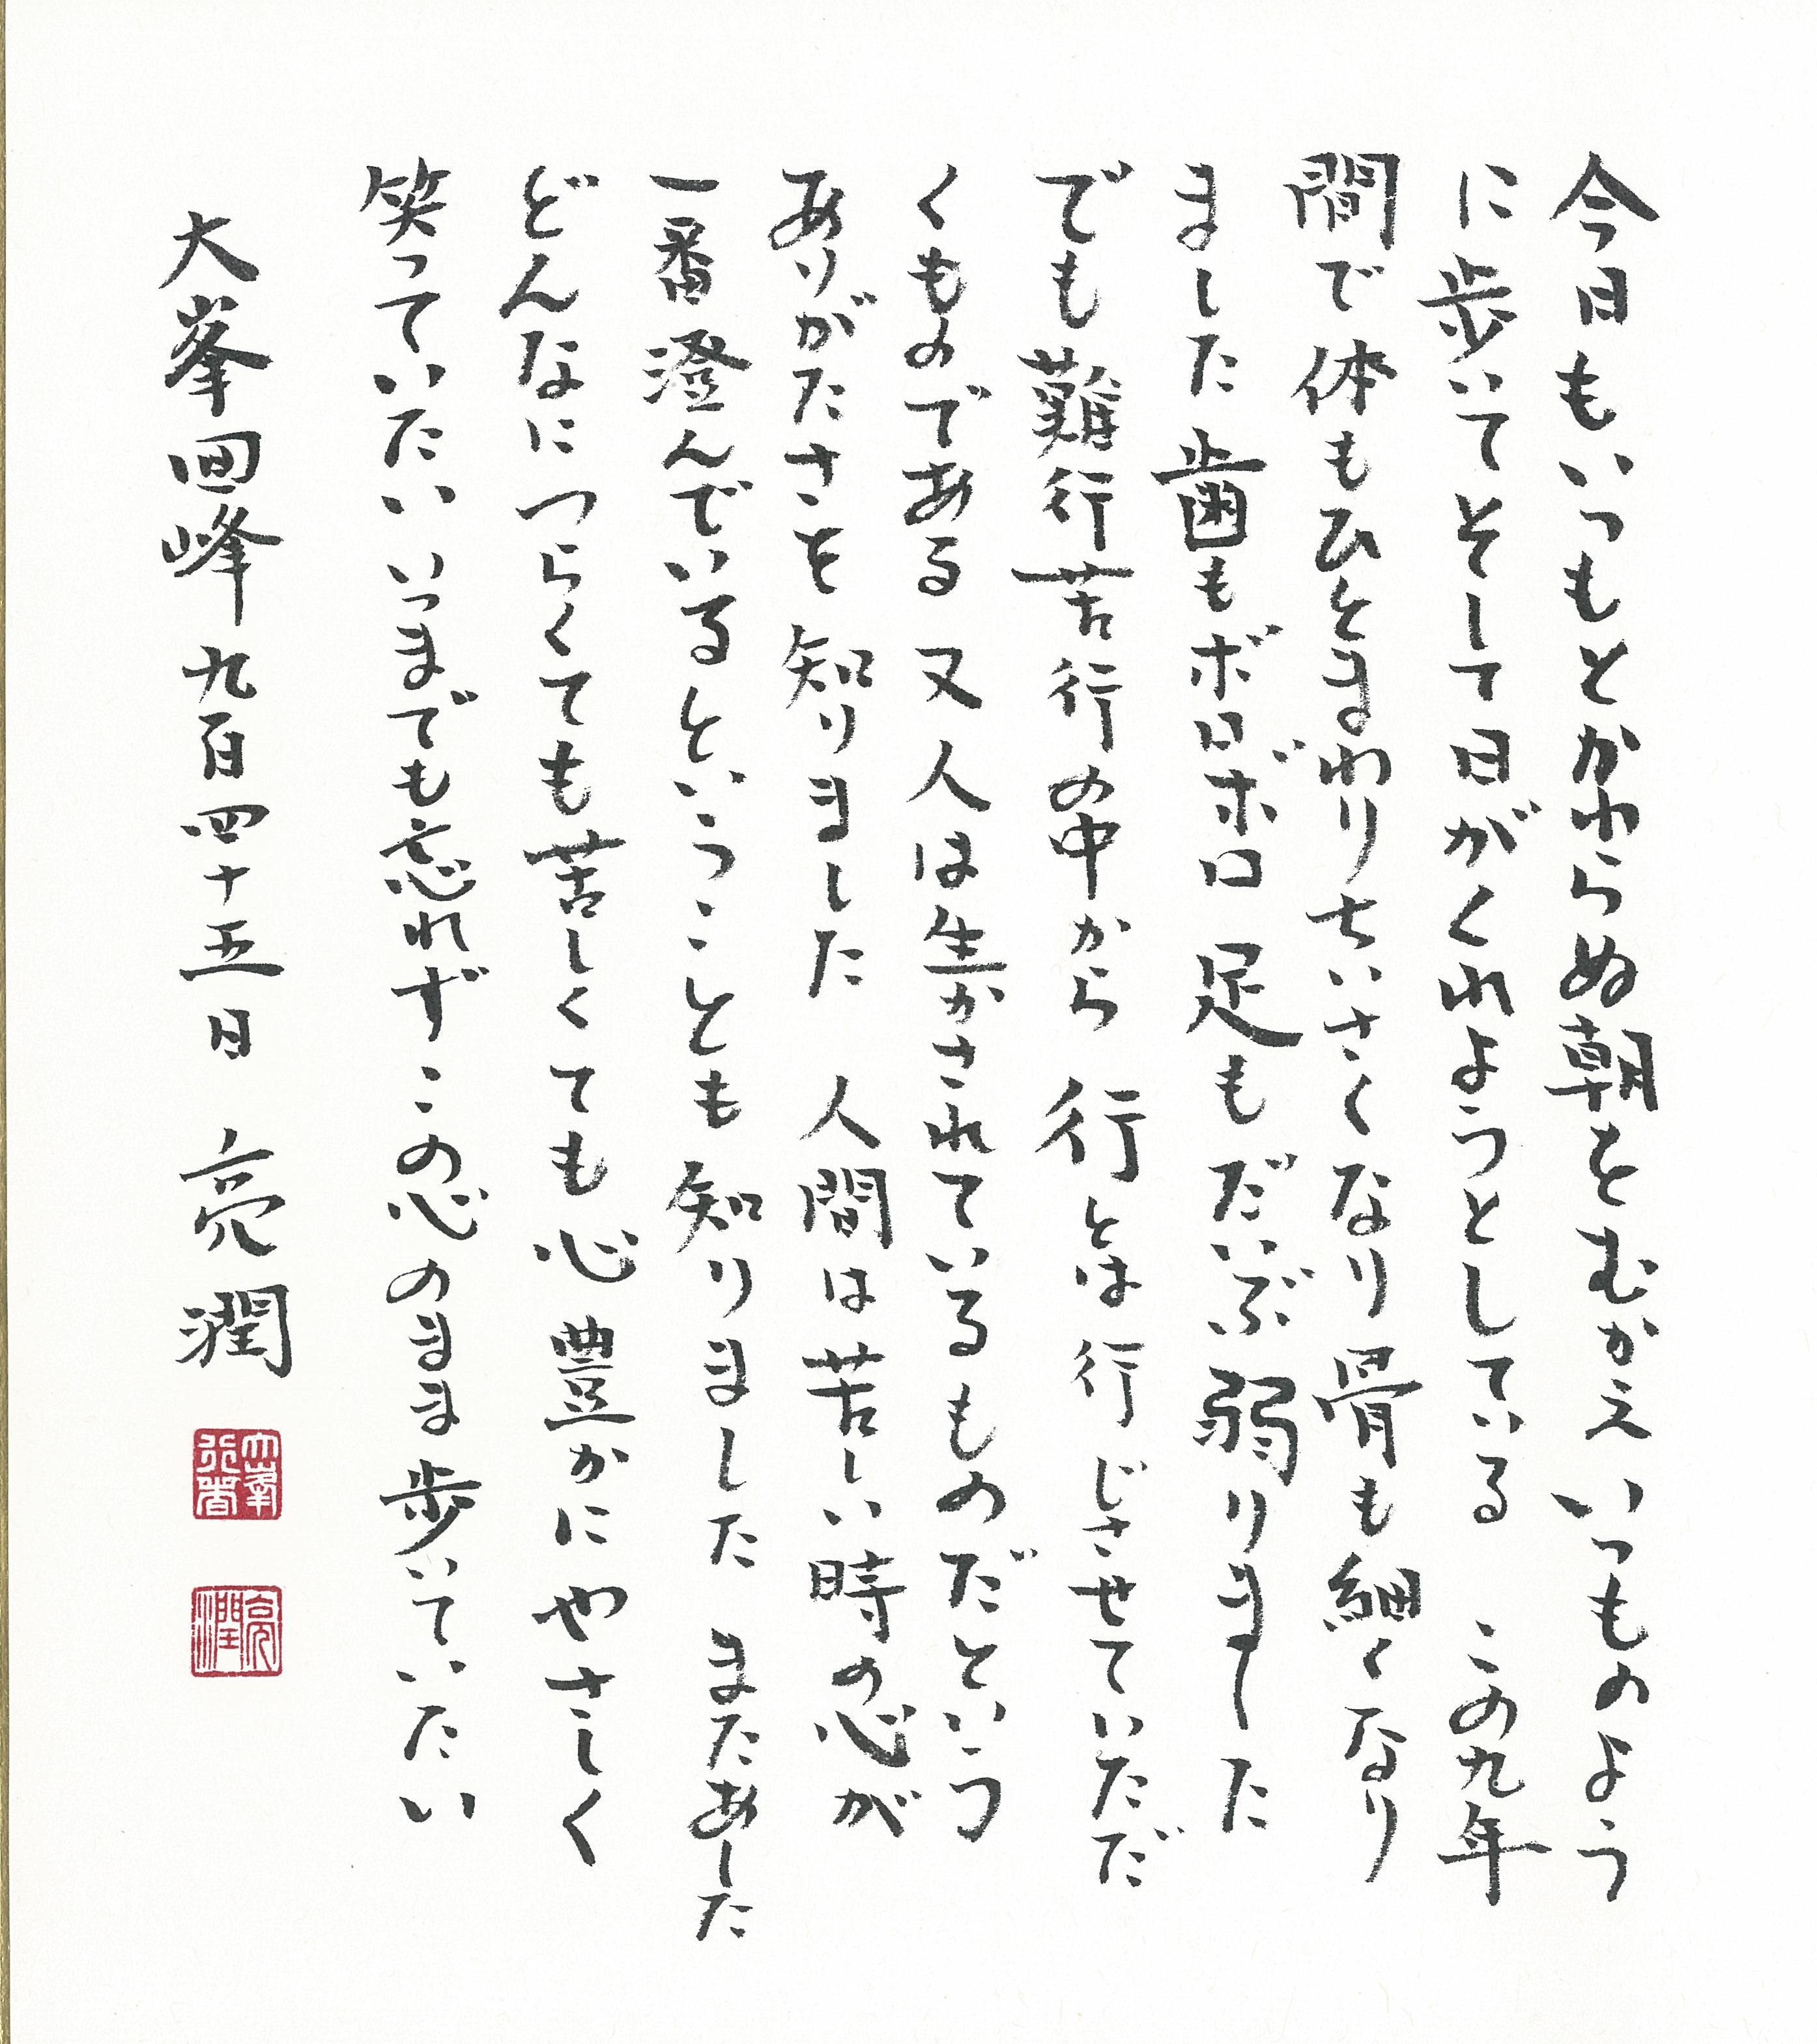 今日もいつもとかわらぬ朝をむかえいつものよう
に歩いてそして日がくれようとしている この九年
間で体もひとまわりちいさくなり骨も細くなり
ました歯もボロボロ足もだいぶ弱りました
でも難行苦行の中から行とは行じさせていただ
くものである又人は生かされているものだという
ありがたさを知りました 人間は苦しい時の心が
一番澄んでいるということも知りました またあした
どんなにつらくても苦しくても心豊かにやさしく
笑っていたいいつまでも忘れずこの心のまま歩いていたい
大峯回峰九百四十五日 亮潤
大峯行者
亮潤